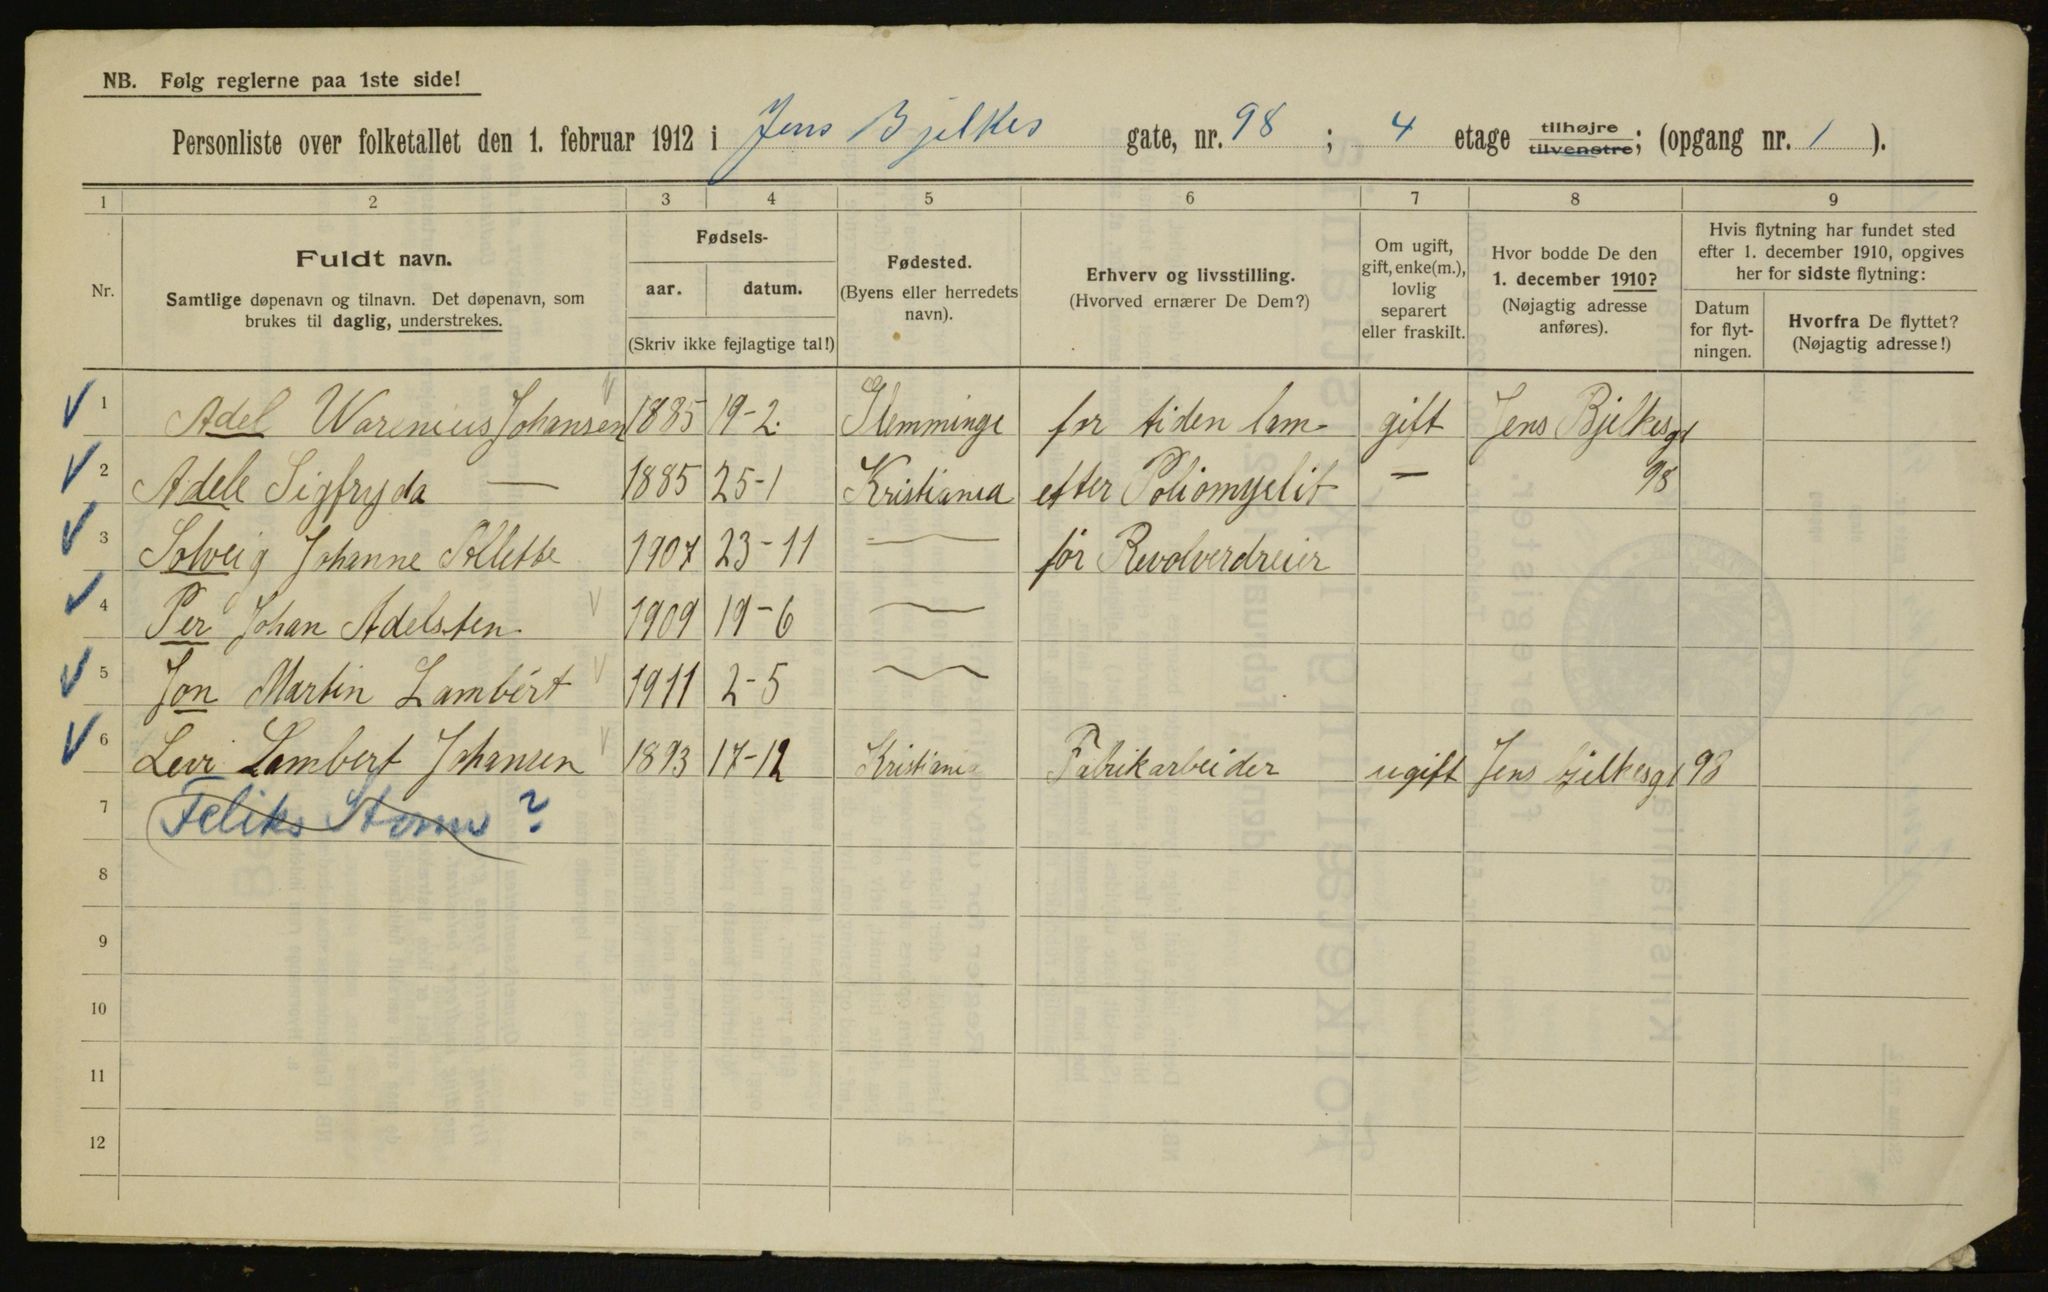 NB. Følg reglerne paa 1ste side!
Personliste over folketallet den 1. februar 1912 i Jens Bjelkes gate, nr. 98 ; 4 etage tilhøjre tilvenstre; (opgang nr. 1 ).
1 2 3 4 5 6 7 8 9
Nr.
Fuldt navn.
Samtlige døpenavn og tilnavn. Det døpenavn, som
brukes til daglig, understrekes.
Fødsels-
aar. datum.
(Skriv ikke fejlagtige tal!)
Fødested.
(Byens eller herredets
navn).
Erhverv og livsstilling.
(Hvorved ernærer De Dem?)
Om ugift,
gift, enke(m.),
lovlig
separert
eller fraskilt.
Hvor bodde De den
1. december 1910?
(Nøjagtig adresse
anføres).
Hvis flytning har fundet sted
efter 1. december 1910, opgives
her for sidste flytning:
Datum
for flyt-
ningen.
Hvorfra De flyttet?
(Nøjagtig adresse!)
1 Adel Warenius Johansen 1885 19-2. Glemminge for tiden lam gift Jens Bjelkesgt
2 Adele Sigfryda — 1885 25-1 Kristiania efter Poliomyelit — 98
3 Solveig Johanne 1907 23-11 — før Revolverdreier
4 Per Johan Adelsten 1909 19-6 —
5 Jon Martin Lambert 1911 2-5 —
6 Levi Lambert Johansen 1893 17-12 Kristiania Fabrikarbeider ugift Jens bjelkesgt 98
7 Feliks ?
8
9
10
11
12